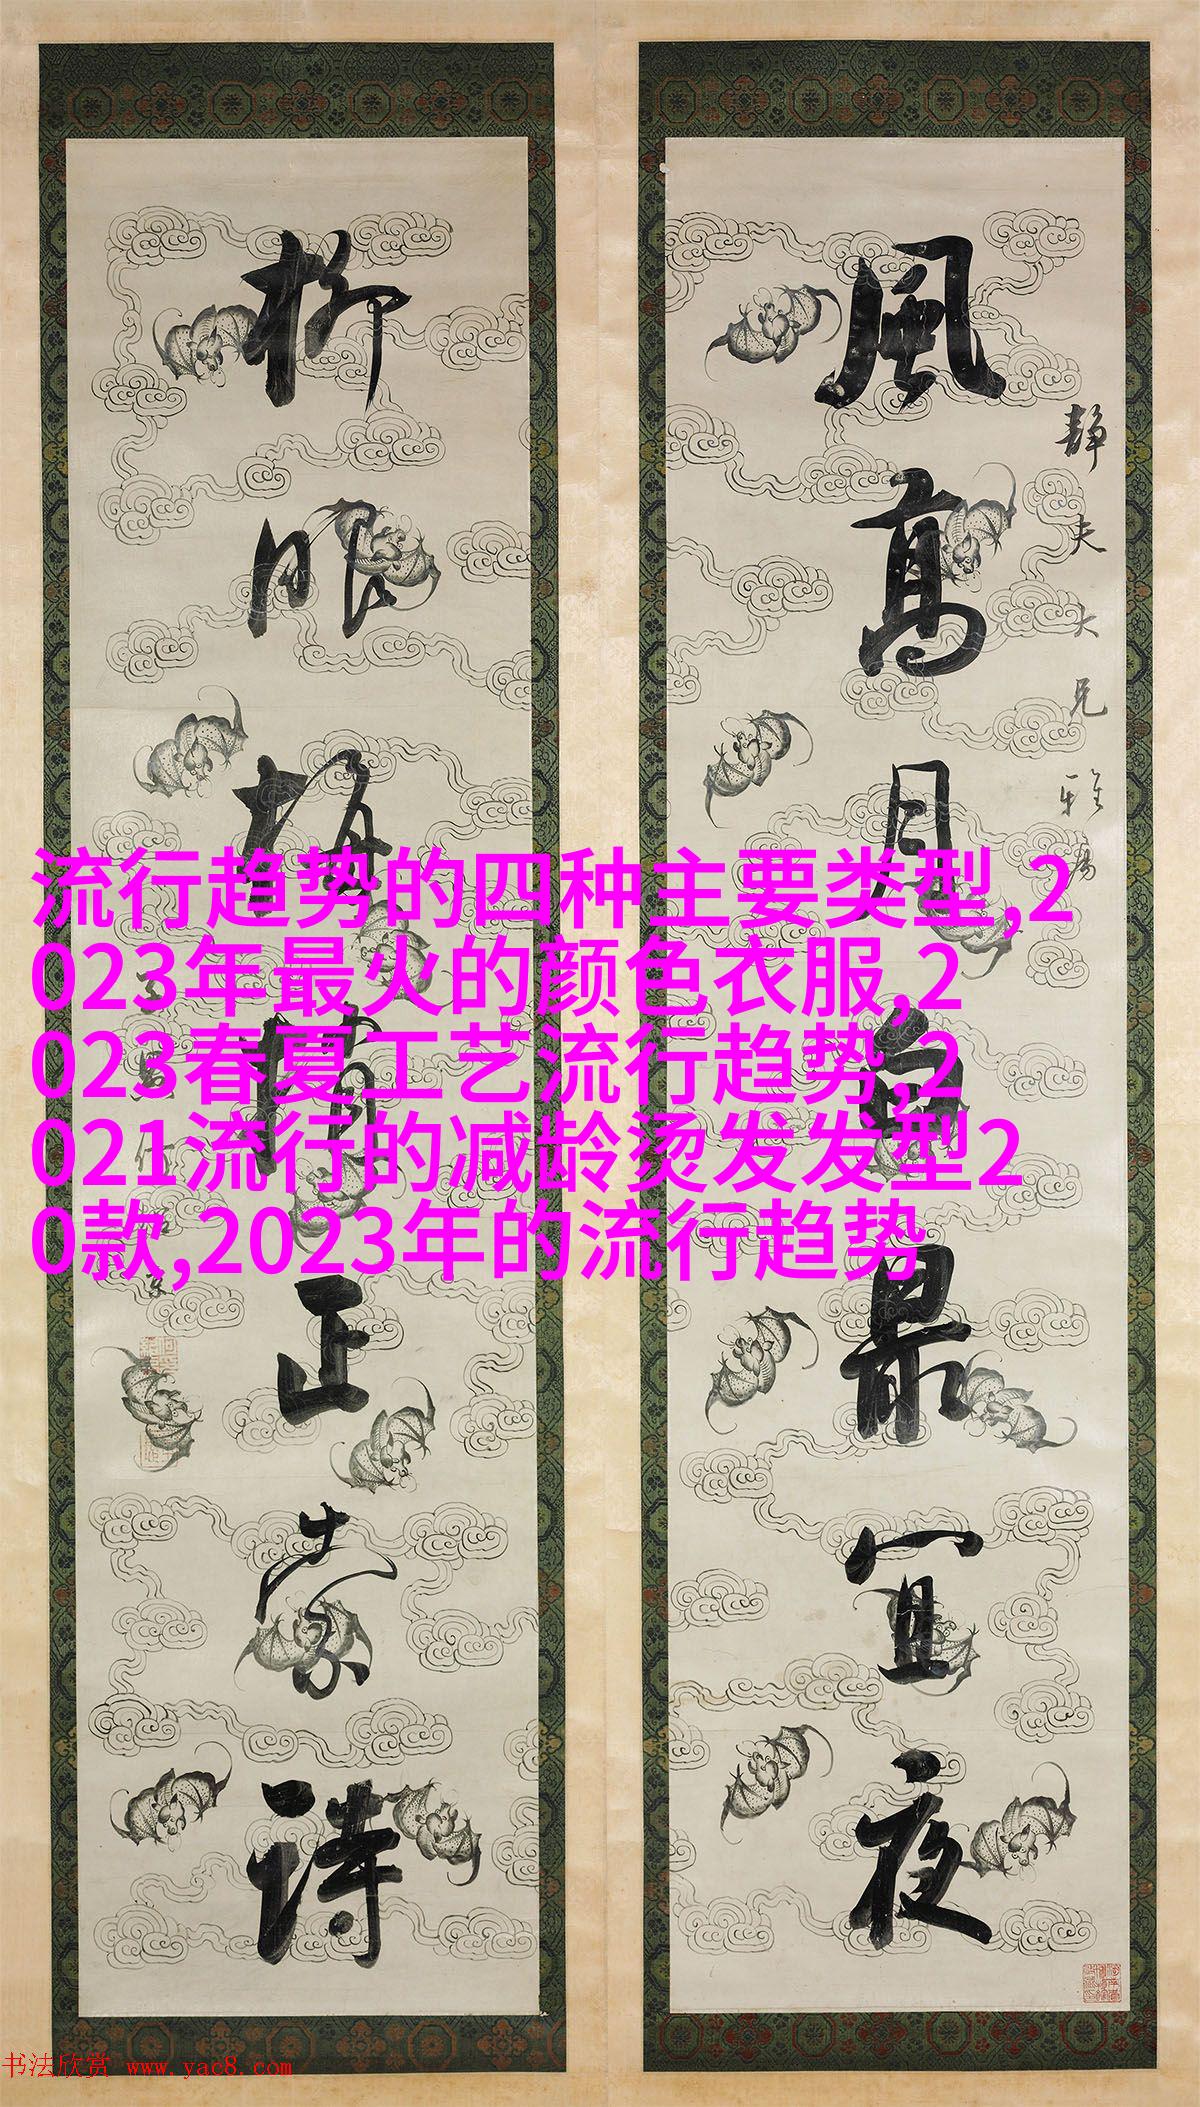 流行趋势的四种主要类型,2
023年最火的颜色衣服,2
023春夏工艺流行趋势,2
021流行的减龄烫发发型2
0款,2023年的流行趋势
静夫大兄雅
風高月白最宜夜
柳眼梅正索詩
书法欣赏 www.yac8.com